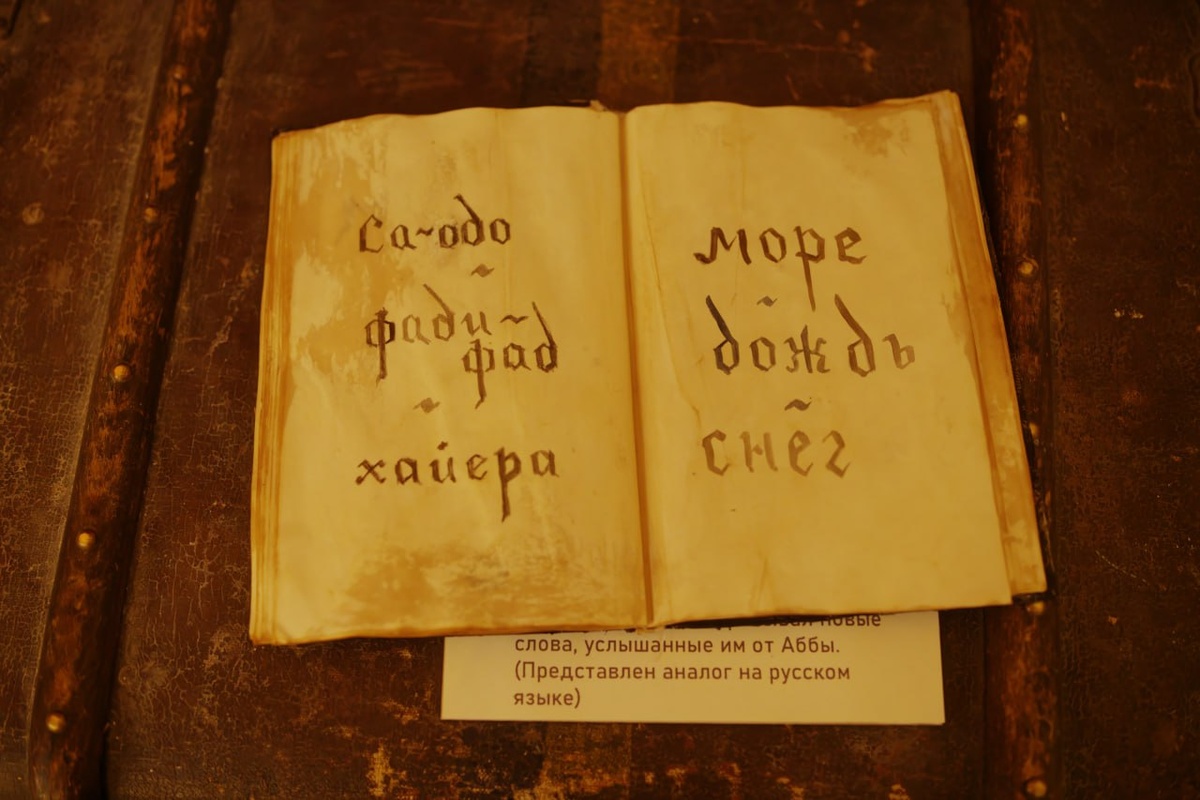 Са~одо
~
фади~
фад
~
хайера
море
~
дождь
~
снег
новые
слова, услышанные им от Аббы.
(Представлен аналог на русском
языке)